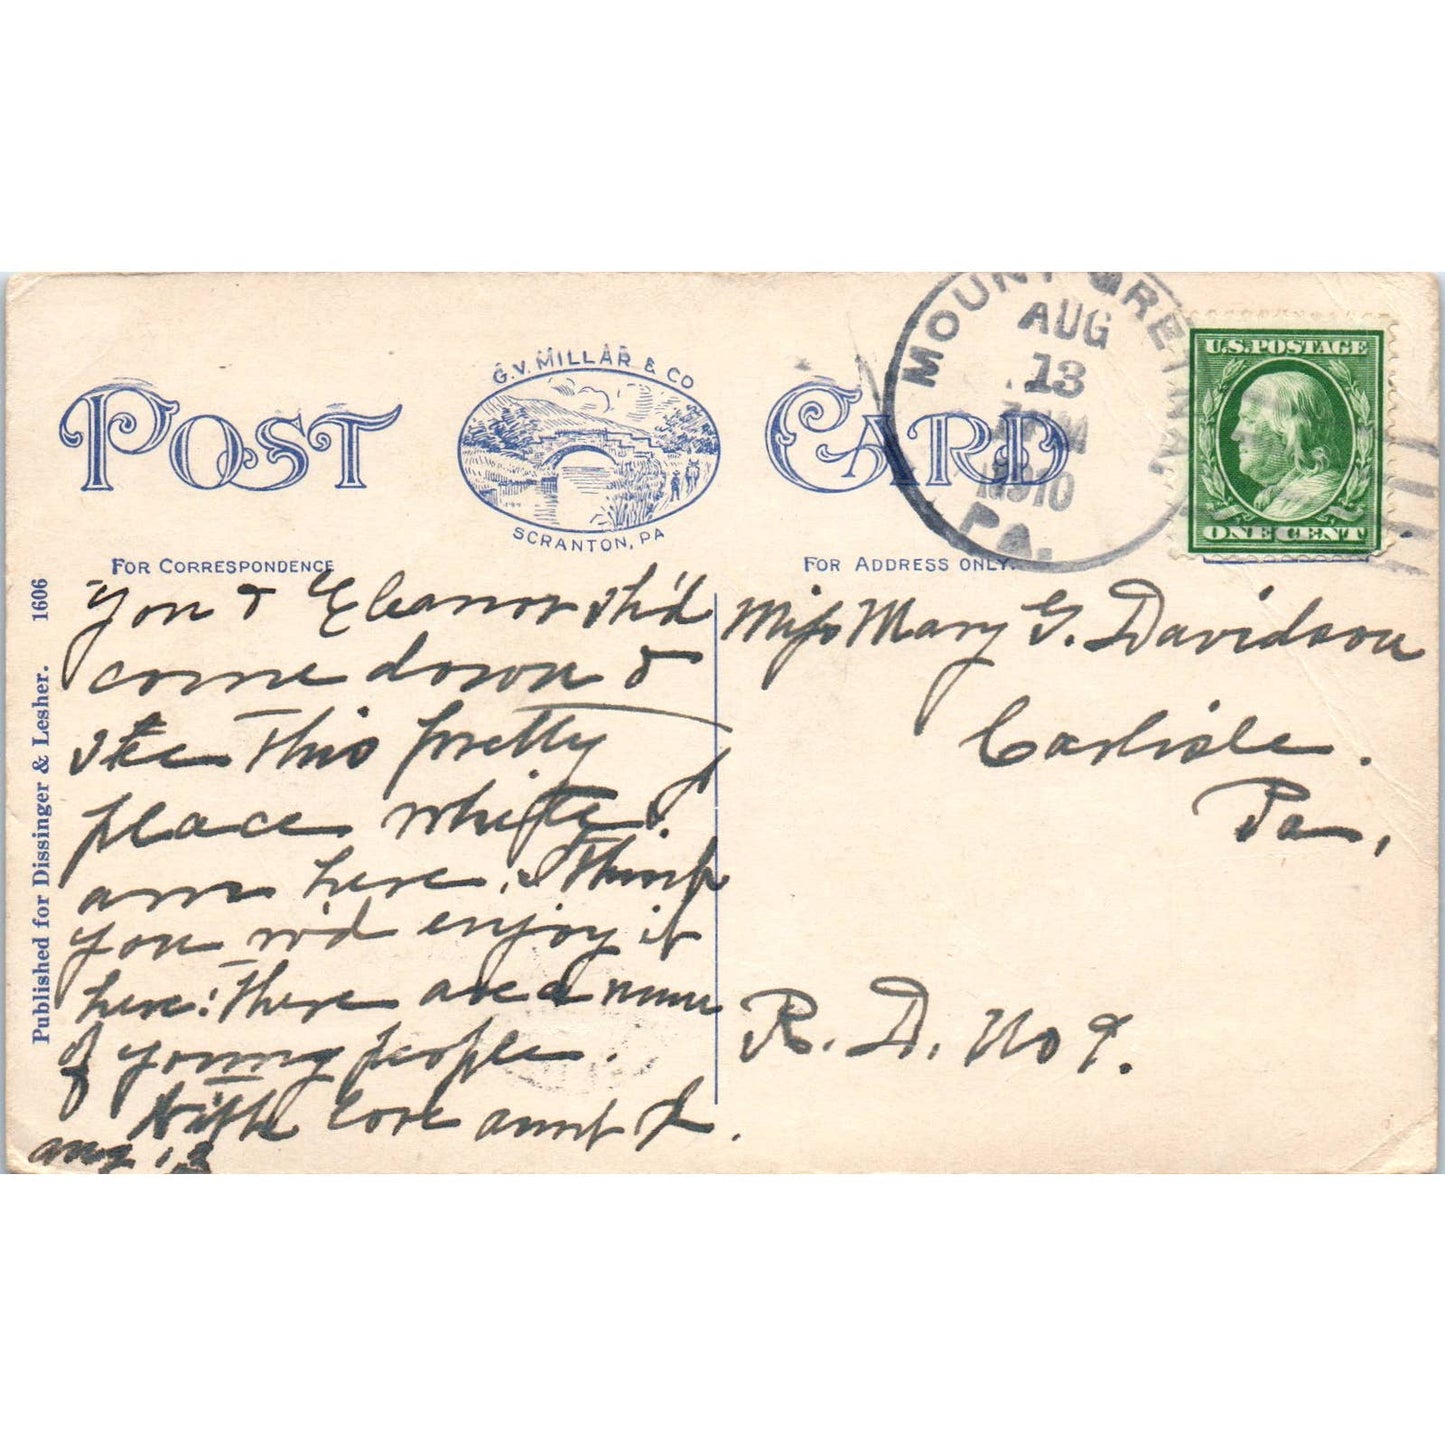 G.V. MILLAR & CO
POST CARD
SCRANTON, PA
FOR CORRESPONDENCE
FOR ADDRESS ONLY.
MOUNT GRETNA,
AUG
13
1910
PA.
U.S. POSTAGE
ONE CENT
Published for Dissinger & Lesher. 1606
You & Eleanor sh'd
come down &
see this pretty
place while I
am here. I think
you w'd enjoy it
here: There are a num
of young people.
With love aunt L.
Aug 13
Miss Mary G. Davidson
Carlisle.
Pa,
R. D. No 9.